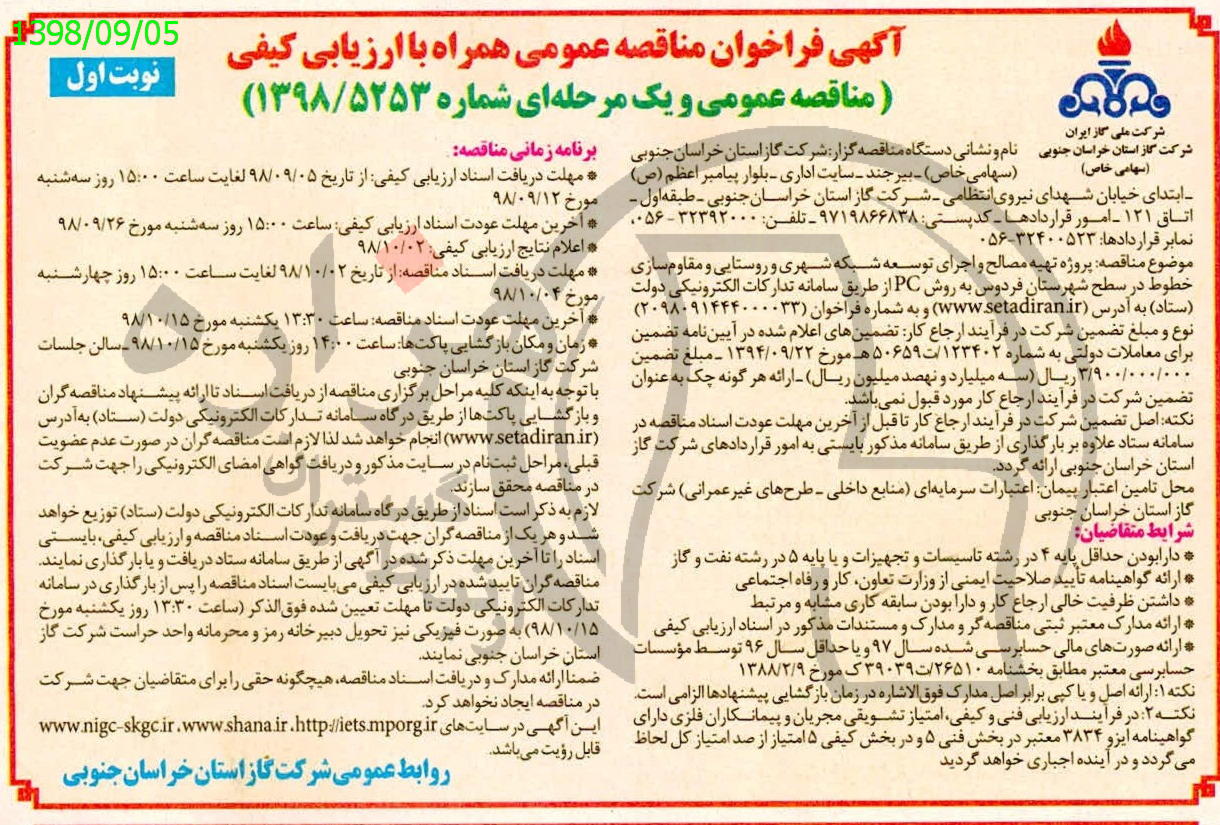 1398/09/05
نوبت اول
آگهی فراخوان مناقصه عمومی همراه با ارزیابی کیفی
(مناقصه عمومی و یک مرحله‌ای شماره ۱۳۹۸/۵۲۵۳)
شرکت ملی گاز ایران
شرکت گاز استان خراسان جنوبی
(سهامی خاص)
نام و نشانی دستگاه مناقصه گزار: شرکت گاز استان خراسان جنوبی
(سهامی خاص) ـ بیرجند ـ سایت اداری ـ بلوار پیامبر اعظم (ص)
ـ ابتدای خیابان شهدای نیروی انتظامی ـ شرکت گاز استان خراسان جنوبی ـ طبقه اول ـ
اتاق ۱۲۱ ـ امور قراردادها ـ کدپستی: ۹۷۱۹۸۶۶۸۳۸ ـ تلفن: ۳۲۳۹۲۰۰۰ - ۰۵۶،
نمابر قراردادها: ۳۲۴۰۰۵۲۳-۰۵۶
موضوع مناقصه: پروژه تهیه مصالح و اجرای توسعه شبکه شهری و روستایی و مقاوم سازی
خطوط در سطح شهرستان فردوس به روش PC از طریق سامانه تدارکات الکترونیکی دولت
(ستاد) به آدرس (www.setadiran.ir) و به شماره فراخوان (۲۰۹۸۰۹۱۴۴۴۰۰۰۰۳۳)
نوع و مبلغ تضمین شرکت در فرآیند ارجاع کار: تضمین های اعلام شده در آیین‌نامه تضمین
برای معاملات دولتی به شماره ۱۲۳۴۰۲/ت۵۰۶۵۹هـ مورخ ۱۳۹۴/۰۹/۲۲ ـ مبلغ تضمین
۳/۹۰۰/۰۰۰/۰۰۰ ریال (سه میلیارد و نهصد میلیون ریال) ـ ارائه هر گونه چک به عنوان
تضمین شرکت در فرآیند ارجاع کار مورد قبول نمی‌باشد.
نکته: اصل تضمین شرکت در فرآیند ارجاع کار تا قبل از آخرین مهلت عودت اسناد مناقصه در
سامانه ستاد علاوه بر بارگذاری از طریق سامانه مذکور بایستی به امور قراردادهای شرکت گاز
استان خراسان جنوبی ارائه گردد.
محل تامین اعتبار پیمان: اعتبارات سرمایه‌ای (منابع داخلی ـ طرح‌های غیرعمرانی) شرکت
گاز استان خراسان جنوبی
شرایط متقاضیان:
* دارا بودن حداقل پایه ۴ در رشته تاسیسات و تجهیزات و یا پایه ۵ در رشته نفت و گاز
* ارائه گواهینامه تأیید صلاحیت ایمنی از وزارت تعاون، کار و رفاه اجتماعی
* داشتن ظرفیت خالی ارجاع کار و دارا بودن سابقه کاری مشابه و مرتبط
* ارائه مدارک معتبر ثبتی مناقصه‌گر و مدارک و مستندات مذکور در اسناد ارزیابی کیفی
* ارائه صورت‌های مالی حسابرسی شده سال ۹۷ و یا حداقل سال ۹۶ توسط مؤسسات
حسابرسی معتبر مطابق بخشنامه ۲۶۵۱۰/ت۳۹۰۳۹ک مورخ ۱۳۸۸/۲/۹
نکته ۱: ارائه اصل و یا کپی برابر اصل مدارک فوق‌الاشاره در زمان بازگشایی پیشنهادها الزامی است.
نکته ۲: در فرآیند ارزیابی فنی و کیفی، امتیاز تشویقی مجریان و پیمانکاران فلزی دارای
گواهینامه ایزو ۳۸۳۴ معتبر در بخش فنی ۵ و در بخش کیفی ۵ امتیاز از صد امتیاز کل لحاظ
می‌گردد و در آینده اجباری خواهد گردید
برنامه زمانی مناقصه:
* مهلت دریافت اسناد ارزیابی کیفی: از تاریخ ۹۸/۰۹/۰۵ لغایت ساعت ۱۵:۰۰ روز سه‌شنبه
مورخ ۹۸/۰۹/۱۲
* آخرین مهلت عودت اسناد ارزیابی کیفی: ساعت ۱۵:۰۰ روز سه‌شنبه مورخ ۹۸/۰۹/۲۶
* اعلام نتایج ارزیابی کیفی: ۹۸/۱۰/۰۲
* مهلت دریافت اسناد مناقصه: از تاریخ ۹۸/۱۰/۰۲ لغایت ساعت ۱۵:۰۰ روز چهارشنبه
مورخ ۹۸/۱۰/۰۴
* آخرین مهلت عودت اسناد مناقصه: ساعت ۱۳:۳۰ یکشنبه مورخ ۹۸/۱۰/۱۵
* زمان و مکان بازگشایی پاکت‌ها: ساعت ۱۴:۰۰ روز یکشنبه مورخ ۹۸/۱۰/۱۵ ـ سالن جلسات
شرکت گاز استان خراسان جنوبی
با توجه به اینکه کلیه مراحل برگزاری مناقصه از دریافت اسناد تا ارائه پیشنهاد مناقصه گران
و بازگشایی پاکت‌ها از طریق درگاه سامانه تدارکات الکترونیکی دولت (ستاد) به آدرس
(www.setadiran.ir) انجام خواهد شد لذا لازم است مناقصه گران در صورت عدم عضویت
قبلی، مراحل ثبت‌نام در سایت مذکور و دریافت گواهی امضای الکترونیکی را جهت شرکت
در مناقصه محقق سازند.
لازم به ذکر است اسناد از طریق درگاه سامانه تدارکات الکترونیکی دولت (ستاد) توزیع خواهد
شد و هر یک از مناقصه گران جهت دریافت و عودت اسناد مناقصه و ارزیابی کیفی، بایستی
اسناد را تا آخرین مهلت ذکر شده در آگهی از طریق سامانه ستاد دریافت و یا بارگذاری نمایند.
مناقصه گران تایید شده در ارزیابی کیفی می‌بایست اسناد مناقصه را پس از بارگذاری در سامانه
تدارکات الکترونیکی دولت تا مهلت تعیین شده فوق‌الذکر (ساعت ۱۳:۳۰ روز یکشنبه مورخ
۹۸/۱۰/۱۵) به صورت فیزیکی نیز تحویل دبیرخانه رمز و محرمانه واحد حراست شرکت گاز
استان خراسان جنوبی نمایند.
ضمنا ارائه مدارک و دریافت اسناد مناقصه، هیچگونه حقی را برای متقاضیان جهت شرکت
در مناقصه ایجاد نخواهد کرد.
این آگهی در سایت‌های www.nigc-skgc.ir ، www.shana.ir ، http://iets.mporg.ir
قابل رؤیت می‌باشد.
روابط عمومی شرکت گاز استان خراسان جنوبی